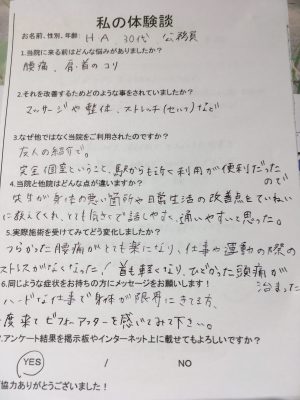 私の体験談
お名前、性別、年齢: H A 30代 公務員
1.当院に来る前はどんな悩みがありましたか?
腰痛、肩・首のコリ
2.それを改善するためどのような事をされていましたか?
マッサージや整体、ストレッチ(セルフ)など
3.なぜ他ではなく当院をご利用されたのですか?
友人の紹介で。
完全個室ということ、駅からも近くて利用が便利だった
ので
4.当院と他院はどんな点が違いますか?
先生が身体の悪い箇所や日常生活の改善点をていねい
に教えてくれ、とても気さくで話しやすく、通いやすいと思った。
5.実際施術を受けてみてどう変化しましたか?
つらかった腰痛がとても楽になり、仕事や運動の際の
ストレスがなくなった!首も軽くなり、ひどかった頭痛が
治まった
6.同じような症状をお持ちの方にメッセージをお願いします!
ハードな仕事で身体が限界にきてる方、
一度来てビフォーアフターを感じてみて下さい。
7.アンケート結果を掲示板やインターネット上に載せてもよろしいですか?
YES / NO
協力ありがとうございました!